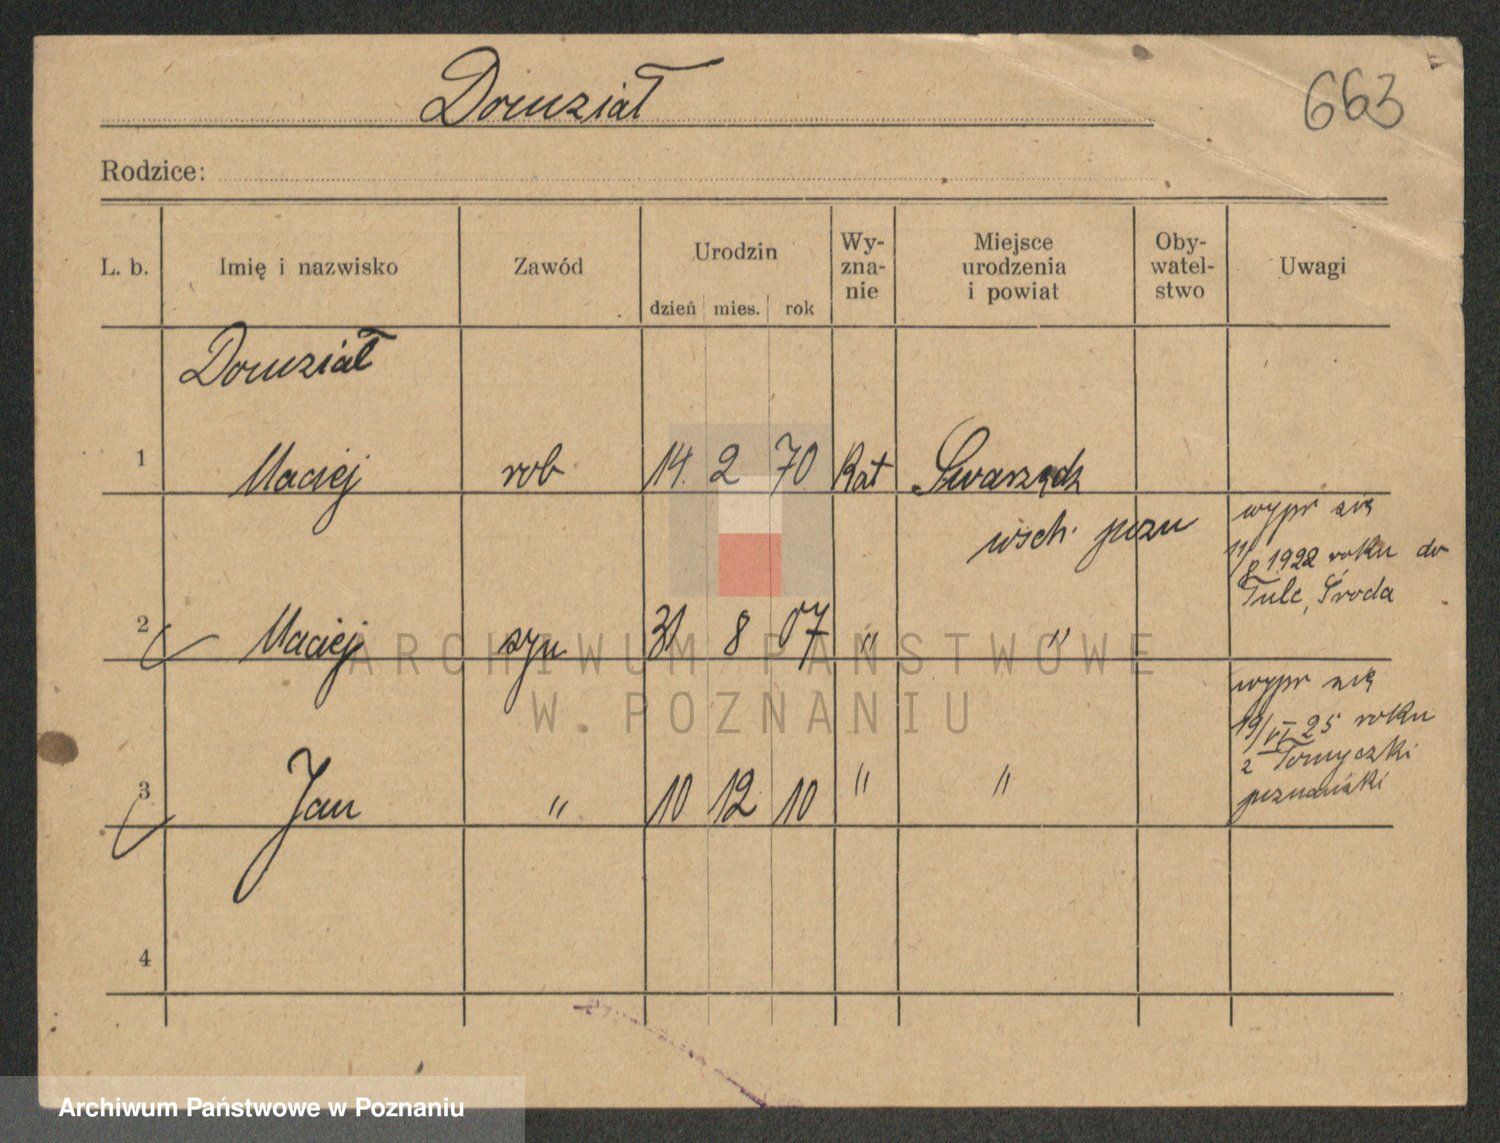 Domział
663
Rodzice:
L. b. Imię i nazwisko Zawód Urodzin Wy- zna- nie Miejsce urodzenia i powiat Oby- watel- stwo Uwagi
dzień mies. rok
Domział
1 Maciej rob 14. 2 70 Kat Swarzędz
wsch. pozn
wypr się
11/8 1922 roku do
Tulc, Środa
2 Maciej syn 31 8 07 " "
wypr się
19/VI 25 roku
z Tomyczki
poznański
3 Jan " 10 12 10 " "
4
ARCHIWUM PAŃSTWOWE
W POZNANIU
Archiwum Państwowe w Poznaniu